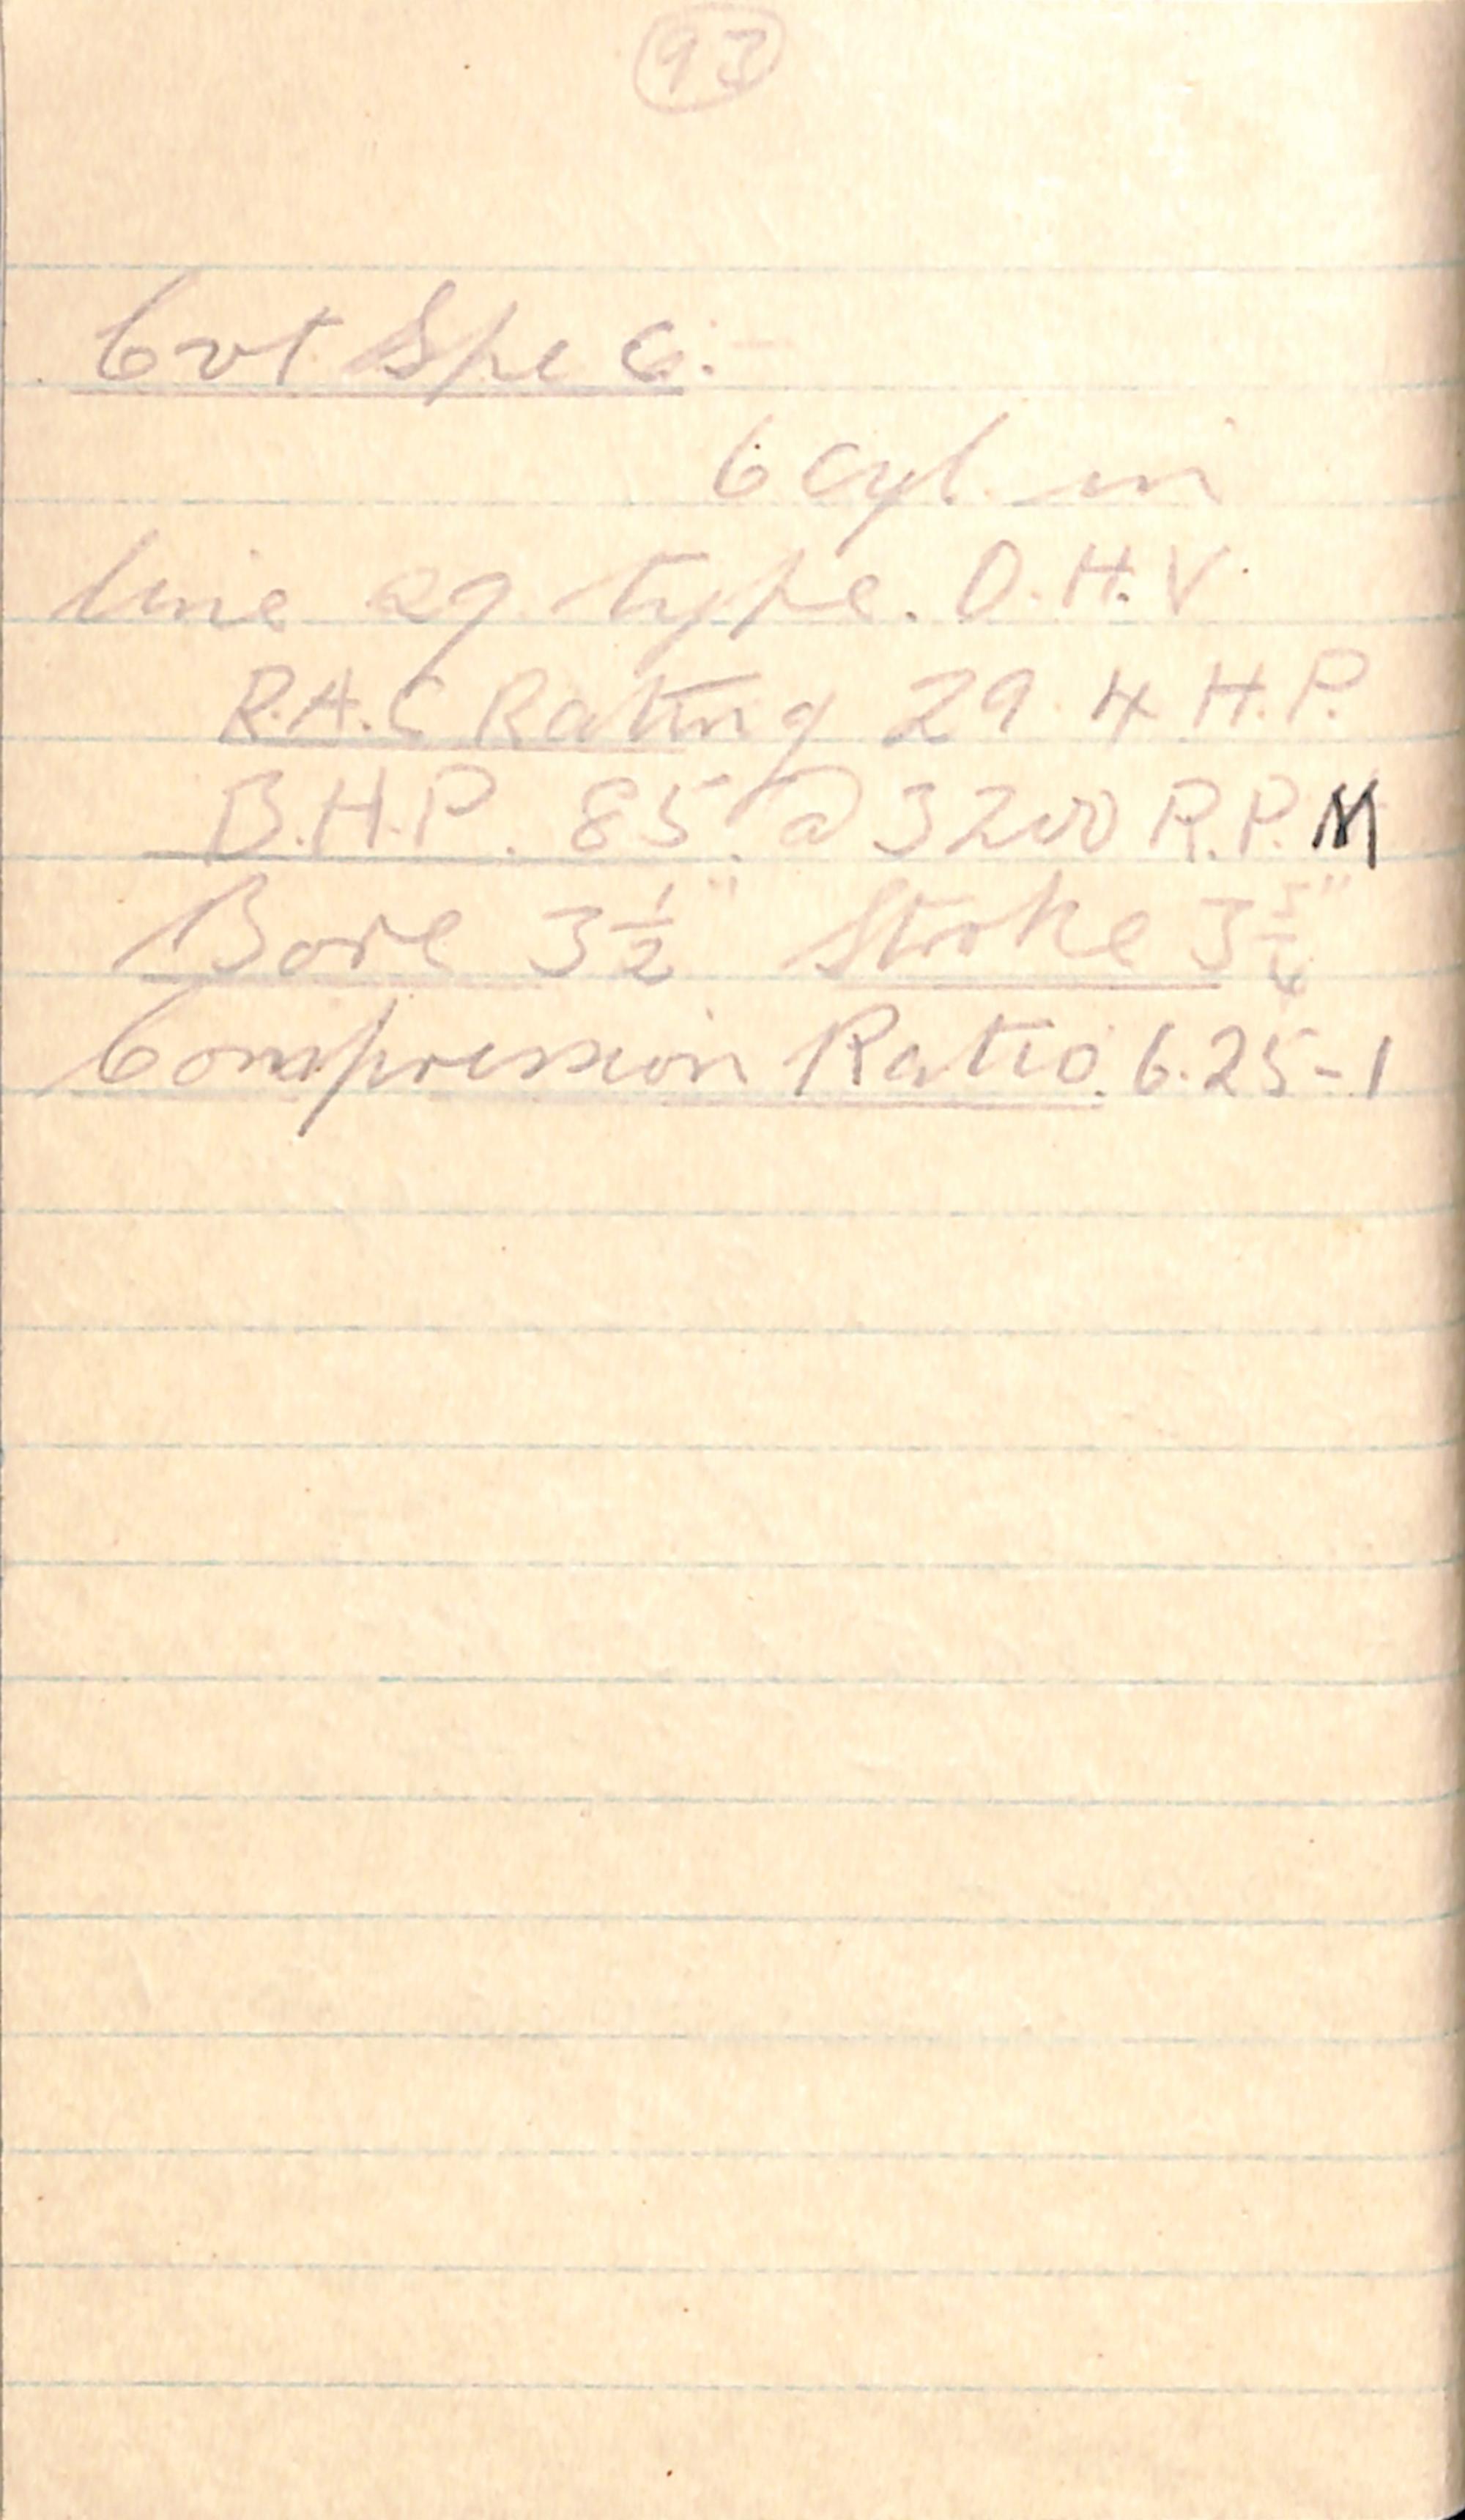 93
Cvt Spec. -
6 cyl. in
line 29 type. O.H.V.
R.A.C Rating 29.4 H.P.
B.H.P. 85. @ 3200 R.P.M
Bore 3 1/2" Stroke 3
Compression Ratio. 6.25-1